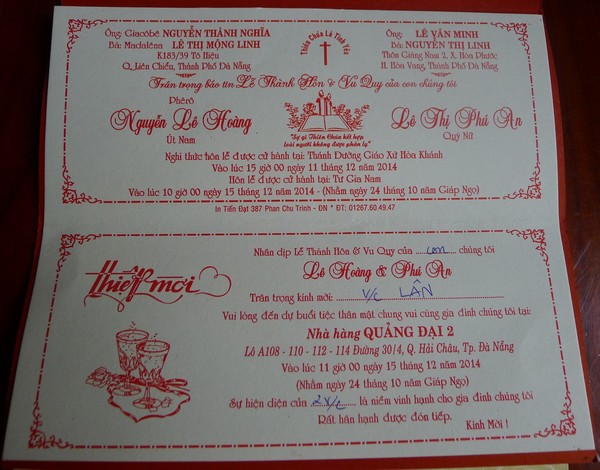 Ông: Giacôbê NGUYỄN THÀNH NGHĨA
Bà: Madalêna LÊ THỊ MỘNG LINH
K183/39 Tô Hiệu
Q. Liên Chiểu, Thành Phố Đà Nẵng
Thiên Chúa Là Tình Yêu
Ông: LÊ VĂN MINH
Bà: NGUYỄN THỊ LINH
Thôn Giáng Nam 2, X. Hòa Phước
H. Hòa Vang, Thành Phố Đà Nẵng
Trân trọng báo tin Lễ Thành Hôn & Vu Quy của con chúng tôi
Phêrô
Nguyễn Lê Hoàng
Út Nam
"Sự gì Thiên Chúa kết hợp
loài người không được phân ly"
Lê Thị Phú An
Quý Nữ
Nghi thức hôn lễ được cử hành tại: Thánh Đường Giáo Xứ Hòa Khánh
Vào lúc 15 giờ 00 ngày 11 tháng 12 năm 2014
Hôn lễ được cử hành tại: Tư Gia Nam
Vào lúc 10 giờ 00 ngày 15 tháng 12 năm 2014 - (Nhằm ngày 24 tháng 10 năm Giáp Ngọ)
In Tiến Đạt 387 Phan Chu Trinh - ĐN * ĐT: 01267.60.49.47
Thiệp mời
Nhân dịp Lễ Thành Hôn & Vu Quy của con chúng tôi
Lê Hoàng & Phú An
Trân trọng kính mời: V/C LÂN
Vui lòng đến dự buổi tiệc thân mật chung vui cùng gia đình chúng tôi tại:
Nhà hàng QUẢNG ĐẠI 2
Lô A108 - 110 - 112 - 114 Đường 30/4, Q. Hải Châu, Tp. Đà Nẵng
Vào lúc 11 giờ 00 ngày 15 tháng 12 năm 2014
(Nhằm ngày 24 tháng 10 năm Giáp Ngọ)
Sự hiện diện của 2 V/C là niềm vinh hạnh cho gia đình chúng tôi
Rất hân hạnh được đón tiếp.
Kính Mời !